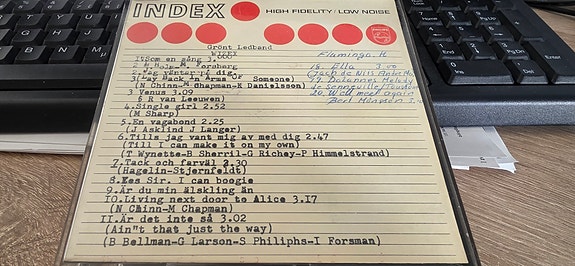 INDEX HIGH FIDELITY/LOW NOISE
Grönt Ledband
WIZEX
1.Som en gång 3.
Forsberg
2.Jag väntar på dig.
Back In Arms Of Someone)
(N Chinn-M Chapman-K Danielsson)
3 Venus 3.09
& R van Leeuwen)
4.Single girl 2.52
(M Sharp)
5.En vagabond 2.25
(J Asklind J Langer)
6.Tills jag vant mig av med dig 2.47
(Till I can make it on my own)
(T Wynette-B Sherril-G Richey-P Himmelstrand)
7.Tack och farväl 2.30
(Hagelin-Stjernfeldt)
8.Yes Sir. I can boogie
9.Är du min älskling än
10.Living next door to Alice 3.17
(N Chinn-M Chapman)
11.Är det inte så 3.02
(Ain"t that just the way)
(B Bellman-G Larson-S Philiphs-I Forsman)
Flamingo.
18 Ella 3.00
Melody
20. We'll meet again